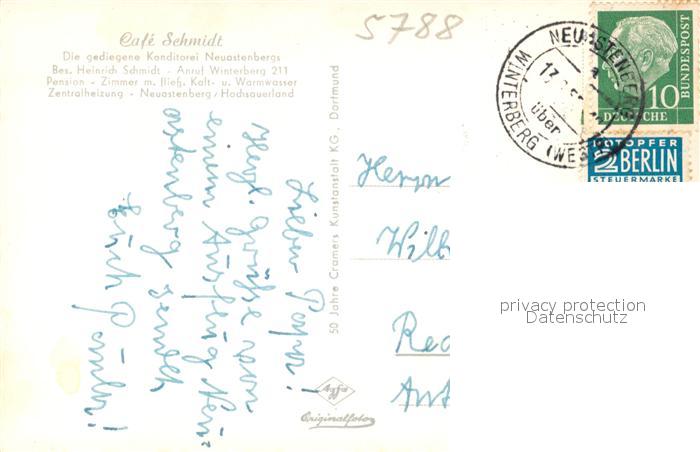 5788
Café Schmidt
Die gediegene Konditorei Neuastenbergs
Bes. Heinrich Schmidt - Anruf Winterberg 211
Pension - Zimmer m. fließ. Kalt- u. Warmwasser
Zentralheizung - Neuastenberg/Hochsauerland
Lieber Papa!
Herzl. Grüße von
einem Ausflug Neu-
astenberg sendet
Euch
50 Jahre Cramers Kunstanstalt KG., Dortmund
Agfa
Originalfoto
Herrn
Wilh
Rec
Amt
NEUASTENBERG
über
WINTERBERG (WES
17
10
DEUTSCHE
BUNDESPOST
NOTOPFER
2 BERLIN
STEUERMARKE
privacy protection
Datenschutz